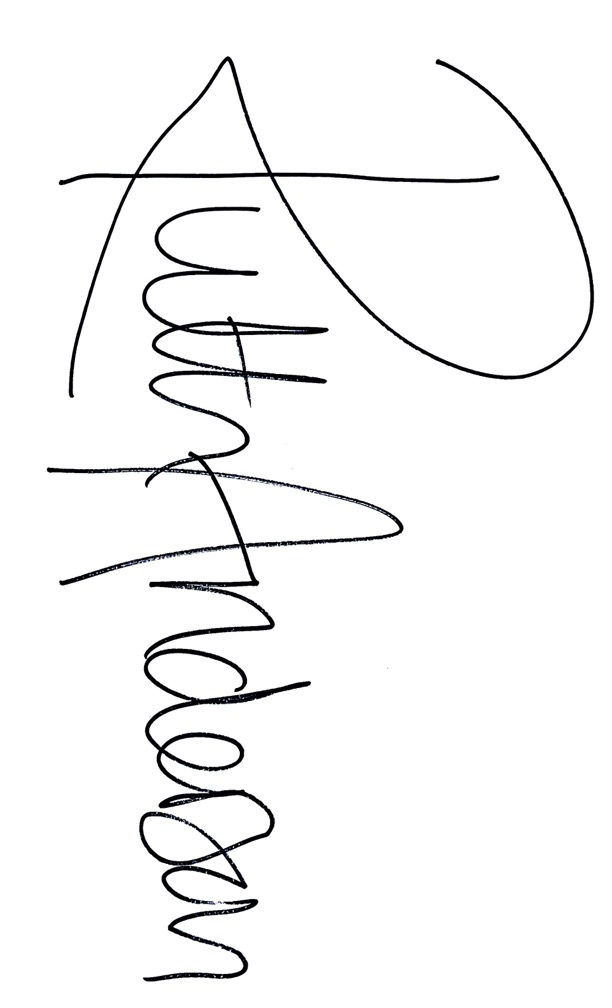 Ruth Anderson